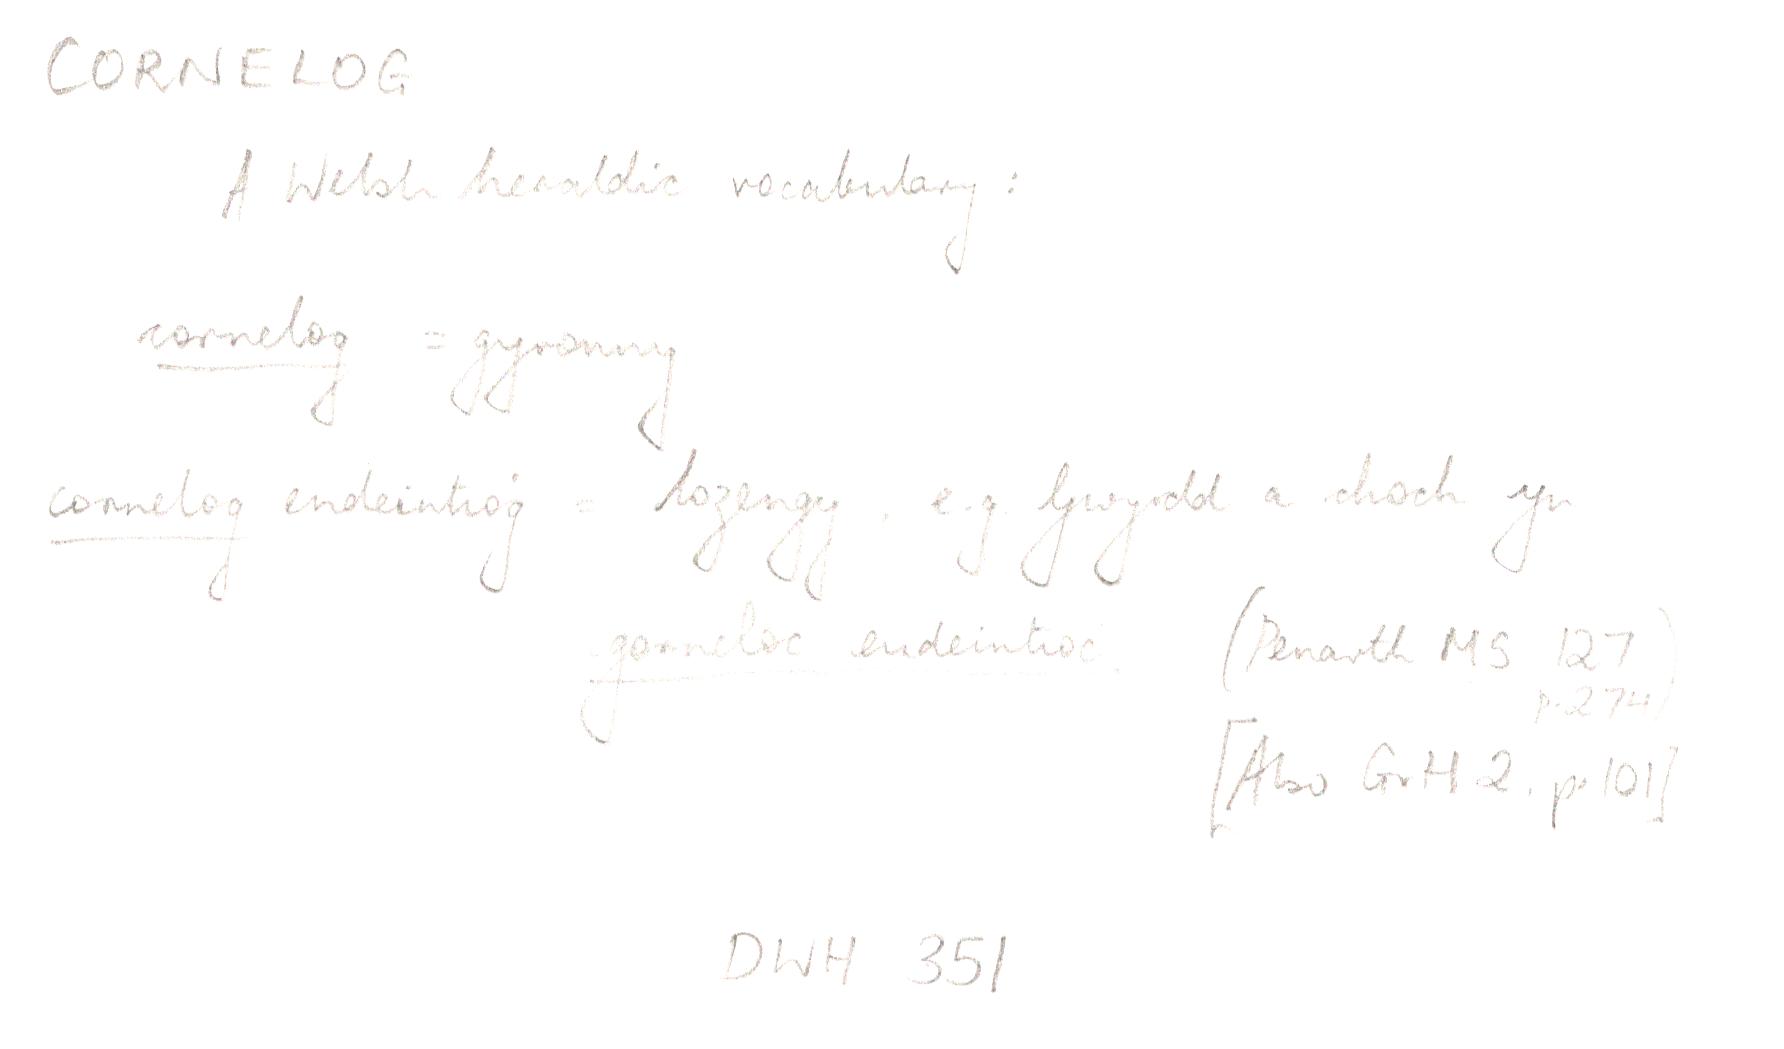 CORNELOG
A Welsh heraldic vocabulary:
cornelog = gyronny
cornelog endeintiog = lozengy, e.g. Gwyrdd a choch yn
gorneloc endeintioc (Peniarth MS 127
p.274)
[Also GrH 2. p.101]
DWH 351